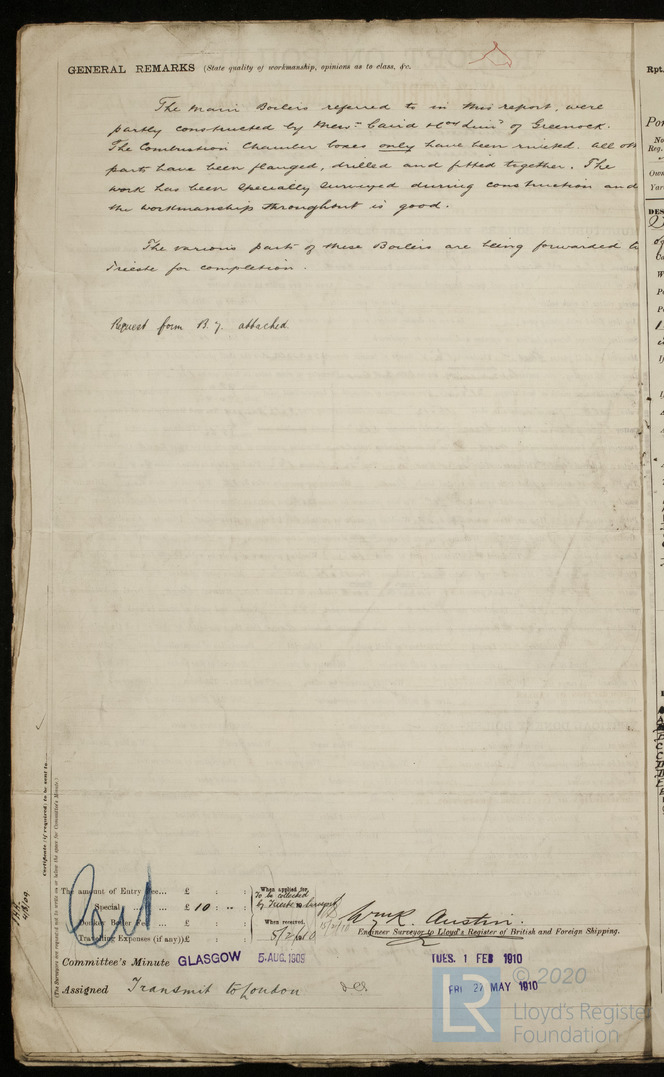 GENERAL REMARKS (State quality of workmanship, opinions as to class, &c.
The main Boilers referred to in this report, were
partly constructed by Messrs Caird & Coy Limd of Greenock.
The Combustion Chamber boxes only have been riveted. All oth
parts have been flanged, drilled and fitted together. The
work has been specially surveyed during construction and
the workmanship throughout is good.
The various parts of these Boilers are being forwarded to
Trieste for completion.
Request form B.7. attached
Certificate (if required) to be sent to
(The Surveyors are requested not to write on or below the space for Committee's Minute.)
4/8/09
The amount of Entry Fee... £ : :
Special ... £ 10 : " :
Donkey Boiler Fee ... £ : :
Travelling Expenses (if any) £ : :
When applied for,
To be collected
by Trieste
When received,
5/2/1910
15/2/10
Wm R. Austin.
Engineer Surveyor to Lloyd's Register of British and Foreign Shipping.
Committee's Minute GLASGOW 5 AUG. 1909 TUES. 1 FEB 1910
Assigned Transmit to London FRI. 27 MAY 1910
© 2020
LR Lloyd's Register
Foundation
Rpt.
Por
No.
Reg.
Own
Yar
DES